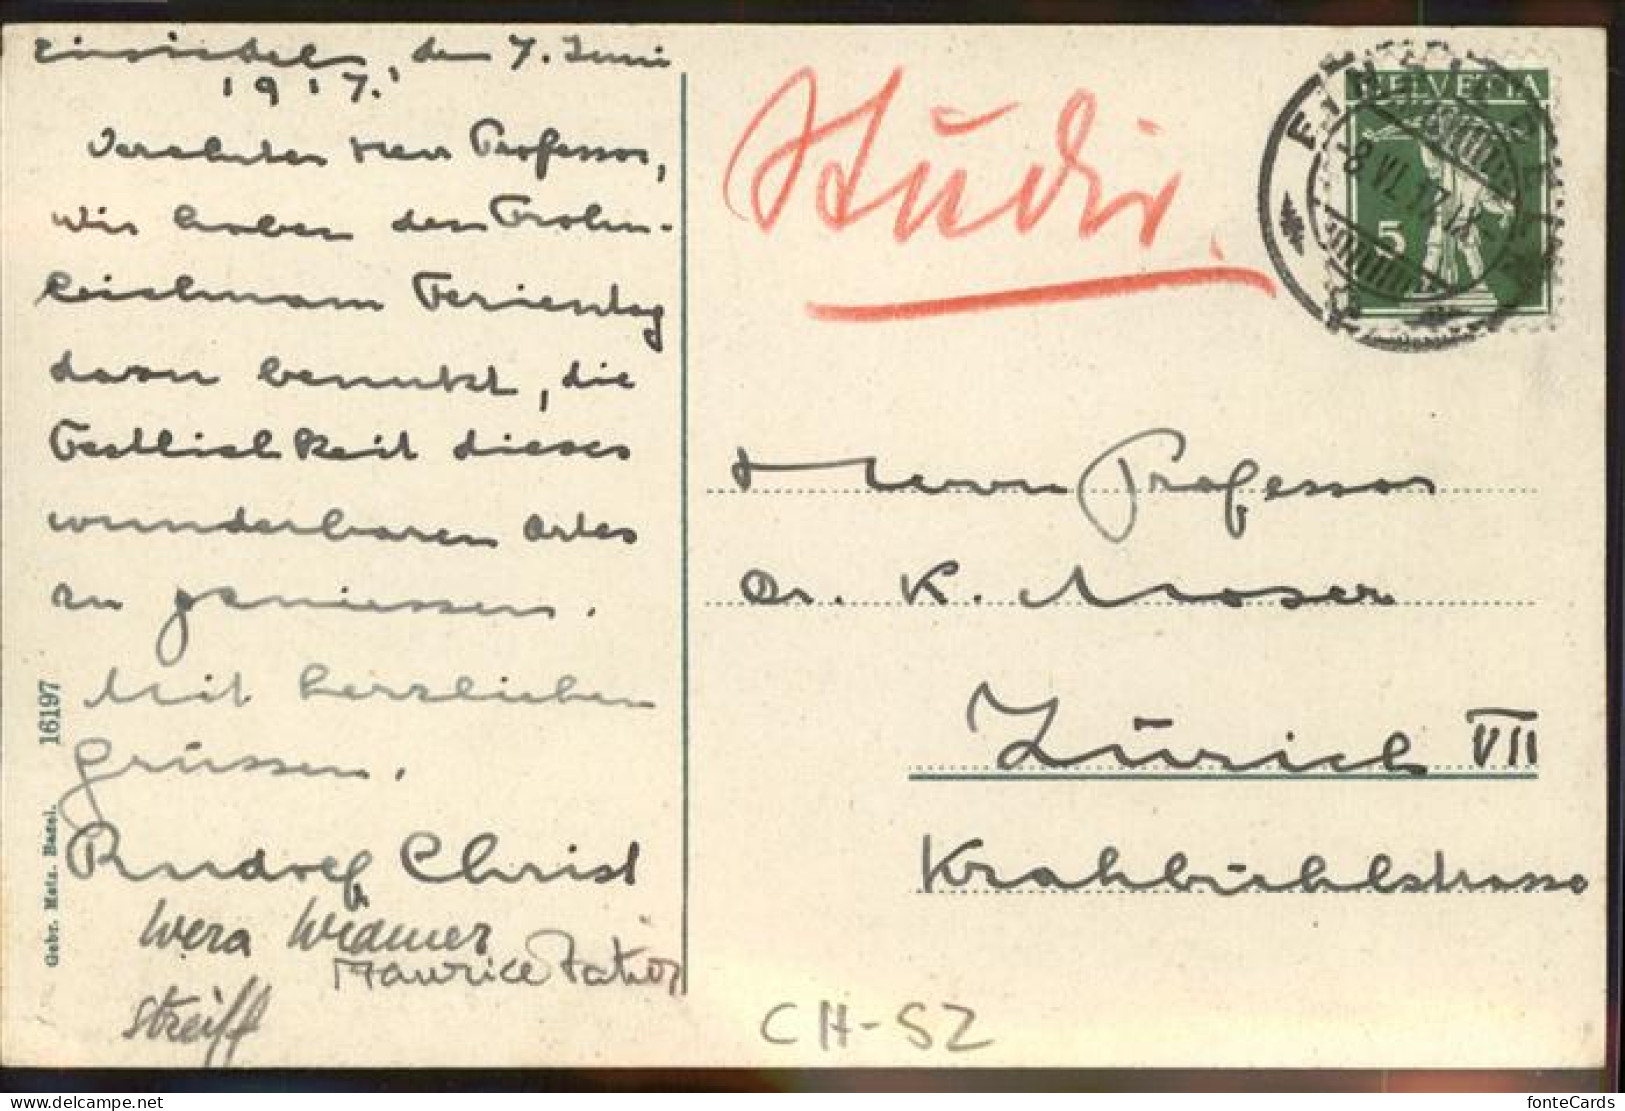 Einsiedeln, den 7. Juni
1917.
Verehrter Herr Professor,
wir haben den Frohn-
leichnam Ferientag
daran benutzt, die
Festlichkeit dieses
wunderbaren Ortes
zu geniessen.
Mit herzlichen
Grüssen.
Rudolf Christ
Wera Widmer
Maurice
Streiff
16197
Gebr. Metz. Basel.
Studer.
HELVETIA
5
EINSIEDELN
8.VI.17.IX
Herrn Professor
Dr. K. Moser
Zürich VII
Krähbühlstrasse
CH-SZ
fonteCards
delcampe.net